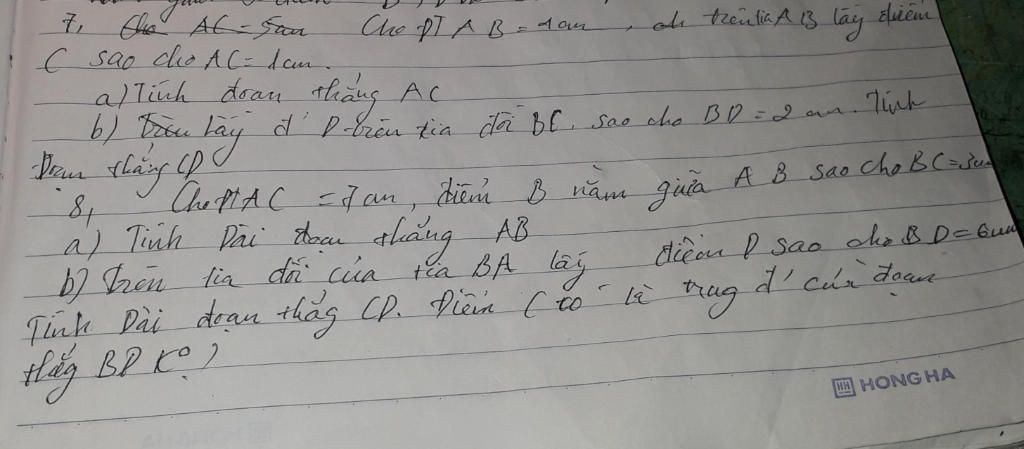 7, Cho AC = 5cm Cho ĐT AB = 4cm, trên tia AB lấy điểm
C sao cho AC = 1cm.
a) Tính đoan thẳng AC
b) Trên lấy đ' D trên tia đối BC. sao cho BD = 2 cm. Tính
thẳng CD
8, Cho ĐT AC = 7cm, điểm B nằm giữa A B sao cho BC = 3cm
a) Tính Dài đoan thẳng AB
b) Trên tia đối của tia BA lấy điểm D sao cho BD = 6cm
Tính Dài đoạn thẳg CD. Điểm C có là trug đ' của đoan
thẳg BD K°?
HH HONG HA